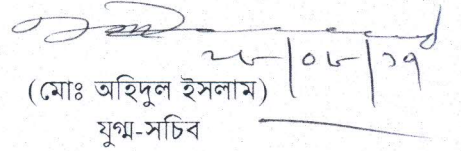 ২৮/০৮/১৭
(মোঃ অহিদুল ইসলাম)
যুগ্ম-সচিব